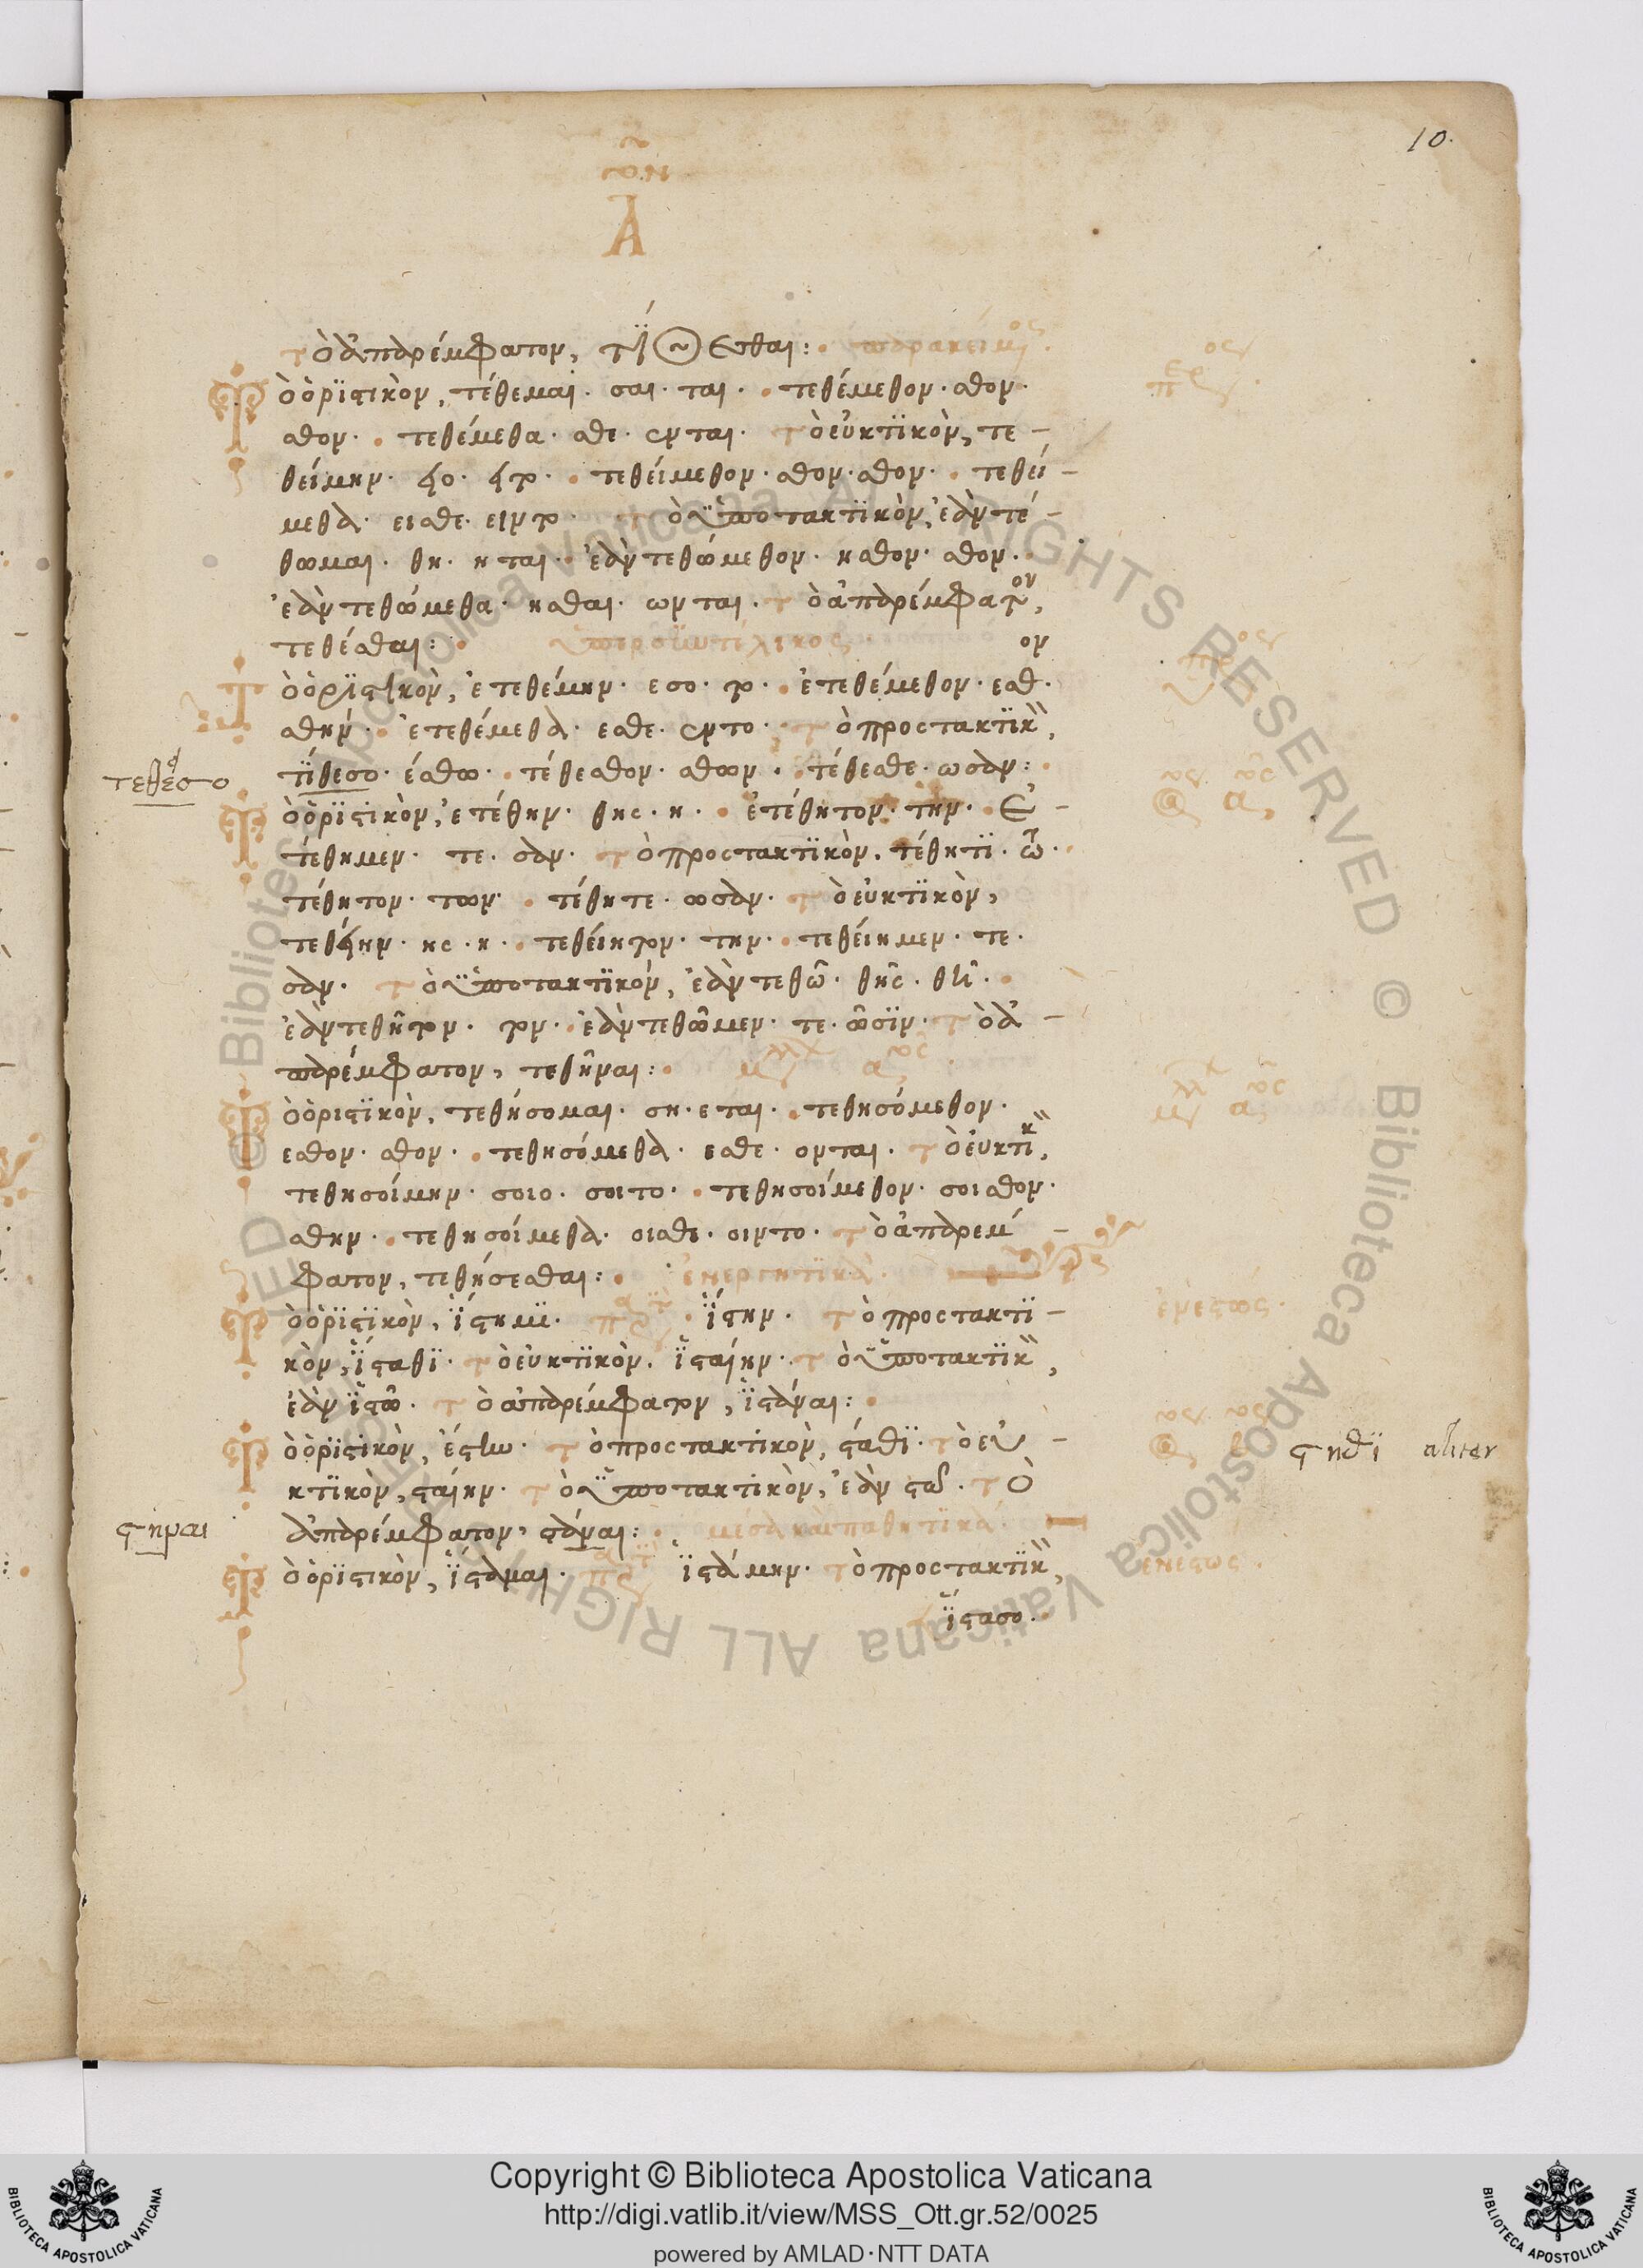 10.
Α
τὸ ἀπαρέμφατον, εσθαι:
Τὸ ὁρϊστικὸν, τέθεμαι. σαι. ται. τεθέμεθον. σθον.
σθον. τεθέμεθα. σθε. ενται. τὸ εὐκτϊκὸν, τε-
θείμην. ειο. ειτο. τεθείμεθον. σθον. σθον. τεθεί-
μεθα. εισθε.ειντο. τὸ ὑποτακτϊκὸν, ἐὰν τέ-
θωμαι. θη. ηται. ἐὰν τεθώμεθον. ησθον. σθον.
ἐὰν τεθώμεθα. ησθαι. ωνται. τὸ ἀπαρέμφατον,
τεθέσθαι:
Τὸ ὁρϊστικὸν, ἐτεθέμην. εσο. το. ἐτεθέμεθον. εσθον.
σθην. ἐτεθέμεθα. εσθε. εντο. τὸ προστακτϊκ,
τίθεσο. έσθω. τέθεσθον. σθων. τέθεσθε. ωσαν:
τεθέσο
Τὸ ὁρϊστικὸν, ἐτέθην. θης. η. ἐτέθητον. την. ἐ-
τέθημεν. τε. σαν. τὸ προστακτϊκὸν. τέθητϊ. ω.
τέθητον. των. τέθητε. ωσαν. τὸ εὐκτϊκὸν,
τεθείην. ης. η. τεθείητον. την. τεθείημεν. τε.
σαν. τὸ ὑποτακτϊκόν, ἐὰν τεθῶ. θῆς. θῆ.
ἐὰν τεθῆτον. τον. ἐὰν τεθῶμεν. τε. ῶσϊν. τὸ ἀ-
παρέμφατον, τεθῆναι:
Τὸ ὁριστϊκὸν, τεθήσομαι. ση. εται. τεθησόμεθον.
εσθον. σθον. τεθησόμεθα. εσθε. ονται. τὸ εὐκτικ,
τεθησοίμην. σοιο. σοιτο. τεθησοίμεθον. σοισθον.
σθην. τεθησοίμεθα. οισθε. οιντο. τὸ ἀπαρέμ-
φατον, τεθήσεσθαι: ἐνεργητϊκὰ
Τὸ ὁρϊστϊκὸν, ἵστημϊ. ἵστην. τὸ προστακτϊ-
ἐνεστως.
κὸν, ἵσταθϊ. τὸ εὐκτϊκὸν. ἱσταίην. τὸ ὑποτακτϊκ,
ἐὰν ἱστῶ. τὸ ἀπαρέμφατον, ἱστάναι:
Τὸ ὁρϊστικὸν, ἔστην. τὸ προστακτικὸν, στάθϊ. τὸ εὐ-
στηθϊ aliter
κτϊκὸν, σταίην. τὸ ὑποτακτικὸν, ἐὰν στῶ. τὸ
ἀπαρέμφατον, στάναι: μέσα καὶ παθητϊκά
στηναι
Τὸ ὁρϊστικὸν, ἵσταμαι. ἱστάμην. τὸ προστακτϊκ,
ἐνεστως.
ἵστασο.
Copyright © Biblioteca Apostolica Vaticana
http://digi.vatlib.it/view/MSS_Ott.gr.52/0025
powered by AMLAD·NTT DATA